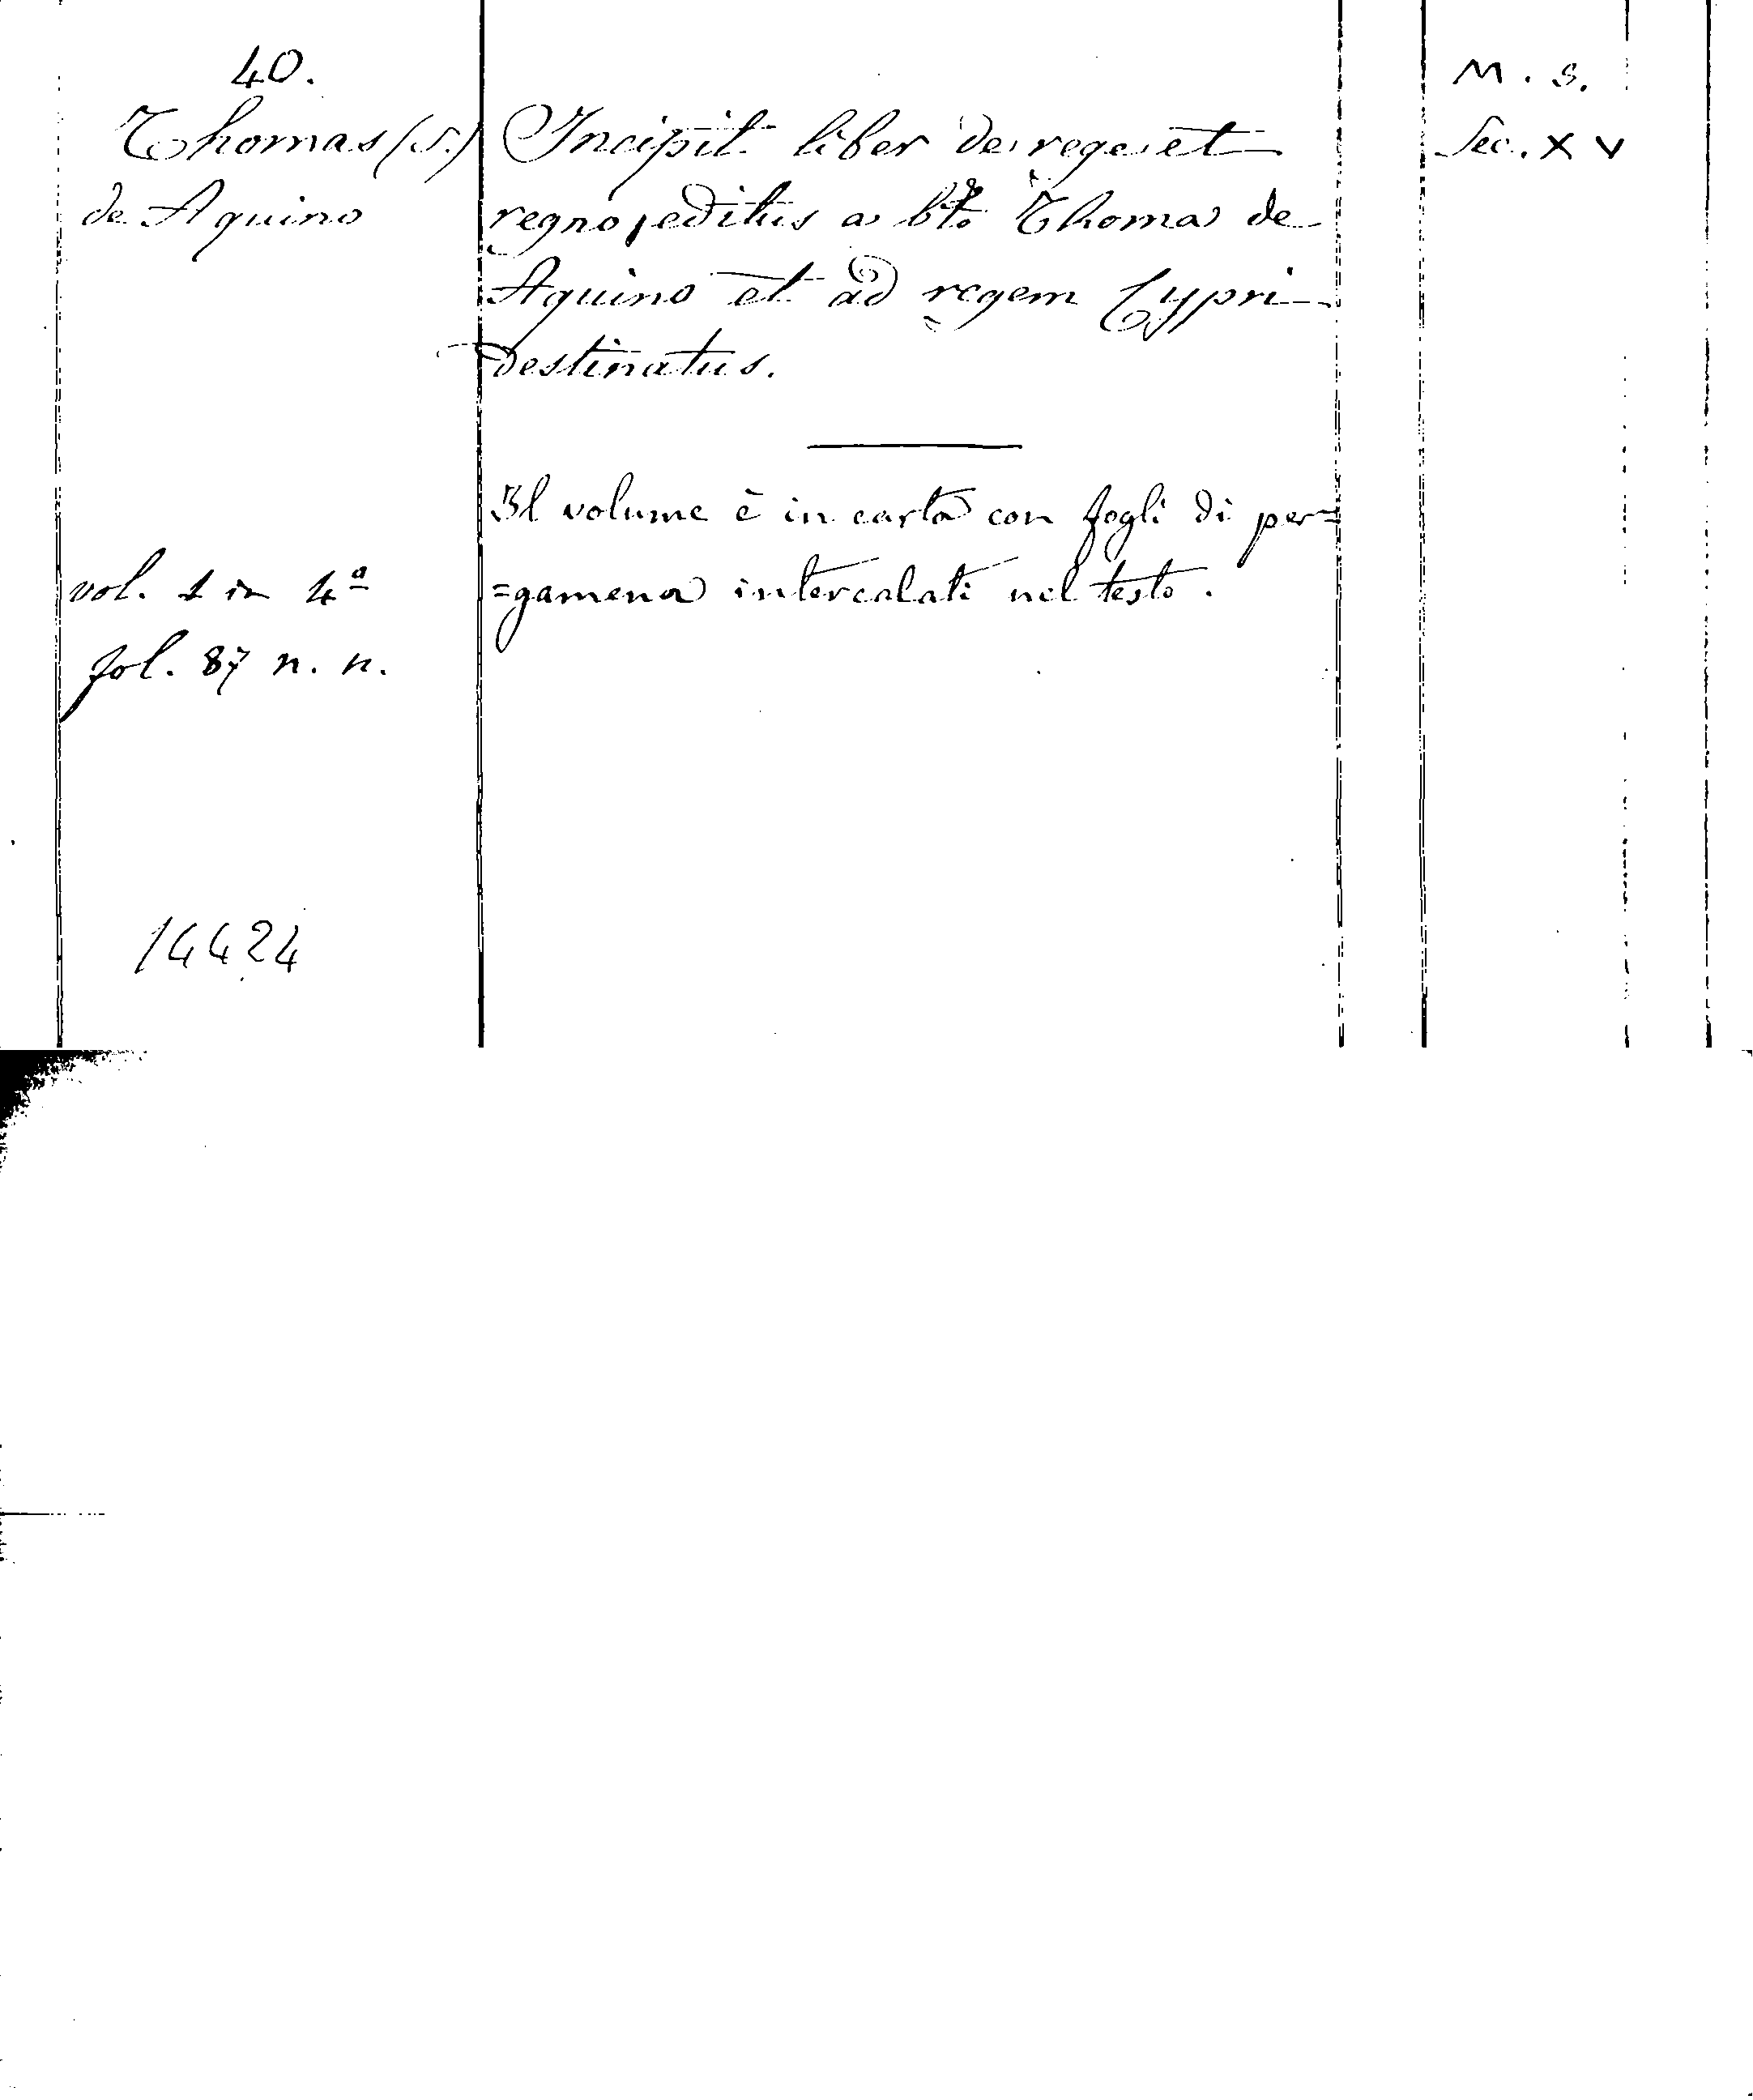 40.
Thomas (S.)
de Aquino
vol. 1 in 4º
fol. 87 n. n.
14424
Incipit liber de rege et
regno, editus a bto Thoma de
Aquino et ad regem Cypri
destinatus.
Il volume è in carta con fogli di per=
=gamena intercalati nel testo.
M. S.
Sec. XV